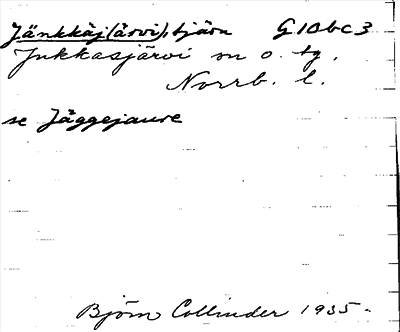 Jänkkäj(ärvi), tjärn G10bc3
Jukkasjärvi sn o. tg.
Norrb. l.
se Jäggejaure
Björn Collinder 1935.